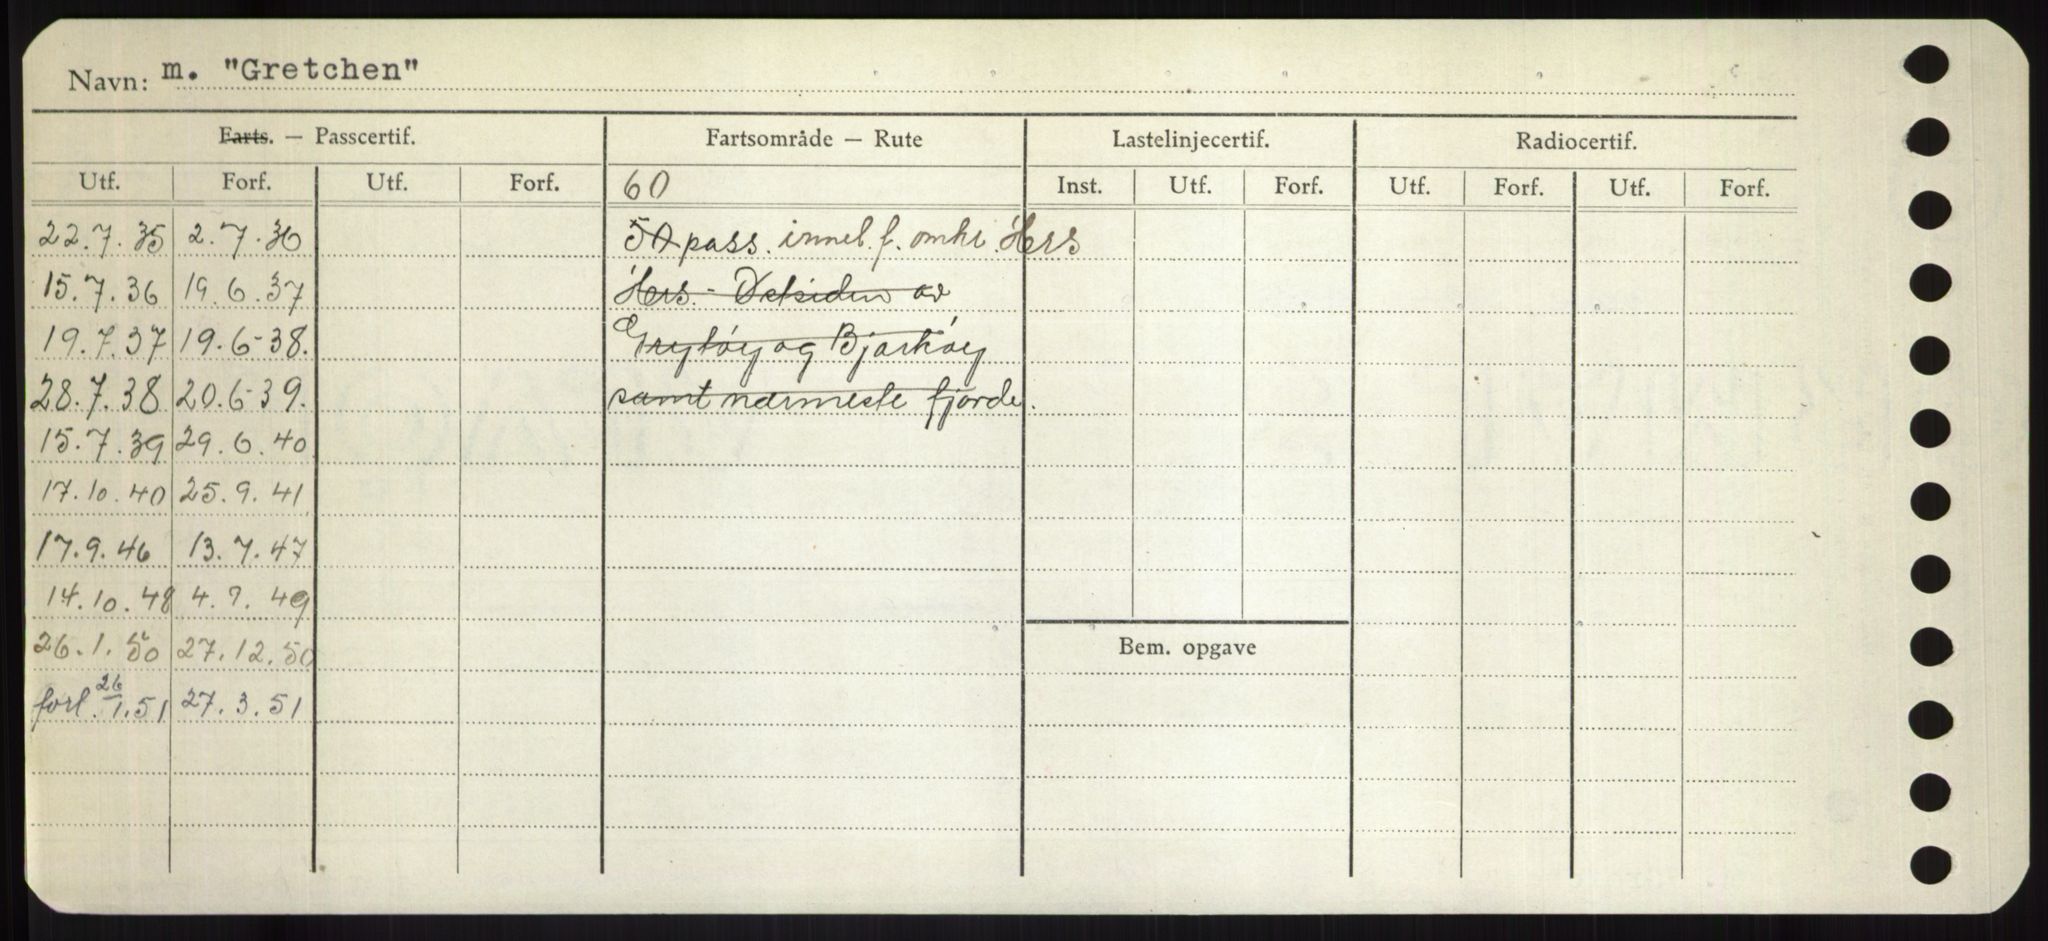 Navn: m. "Gretchen"
Farts. — Passcertif. Fartsområde — Rute Lastelinjecertif. Radiocertif.
Utf. Forf. Utf. Forf. 60 Inst. Utf. Forf. Utf. Forf. Utf. Forf.
22.7.35 2.7.36 50 pass. innel. f. omkr. Hrs
15.7.36 19.6.37 Hrs. - Vetsiden av
19.7.37 19.6-38. Grytøy og Bjarkøy
28.7.38 20.6-39. samt nærmeste fjorde.
15.7.39 29.6.40
17.10.40 25.9.41
17.9.46 13.7.47
14.10.48 4.7.49
26.1.50 27.12.50
Bem. opgave
forl. 26/1.51 27.3.51